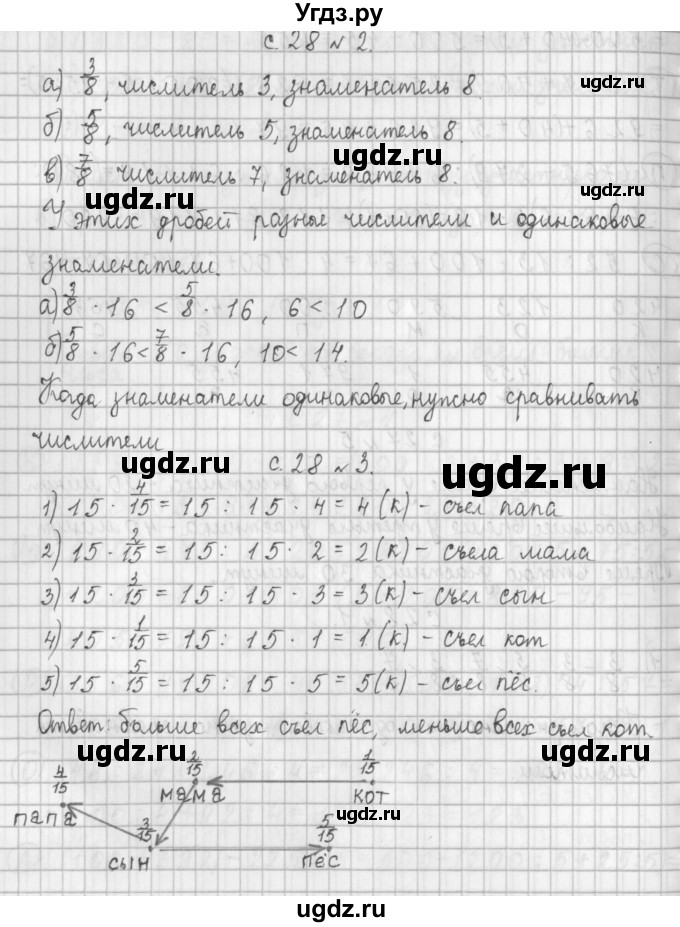 Угдз.ру
с. 28 № 2.
а) 3/8, числитель 3, знаменатель 8.
ugdz.ru ugdz.ru
б) 5/8, числитель 5, знаменатель 8.
в) 7/8 числитель 7, знаменатель 8.
ugdz.ru ugdz.ru
У этих дробей разные числители и одинаковые
знаменатели.
а) 3/8 · 16 < 5/8 · 16, 6 < 10
б) 5/8 · 16 < 7/8 · 16, 10 < 14.
ugdz.ru
Когда знаменатели одинаковые, нужно сравнивать
числители
ugdz.ru
с. 28 № 3.
ugdz.ru
1) 15 · 4/15 = 15 : 15 · 4 = 4 (к) - съел папа
2) 15 · 2/15 = 15 : 15 · 2 = 2 (к) - съела мама
3) 15 · 3/15 = 15 : 15 · 3 = 3 (к) - съел сын
ugdz.ru ugdz.ru
4) 15 · 1/15 = 15 : 15 · 1 = 1 (к) - съел кот
5) 15 · 5/15 = 15 : 15 · 5 = 5 (к) - съел пёс.
Ответ: больше всех съел пёс, меньше всех съел кот.
ugdz.ru ugdz.ru
4/15 2/15 1/15
мама кот
папа 3/15 5/15
ugdz.ru
сын пёс
ugdz.ru
ugdz.ru